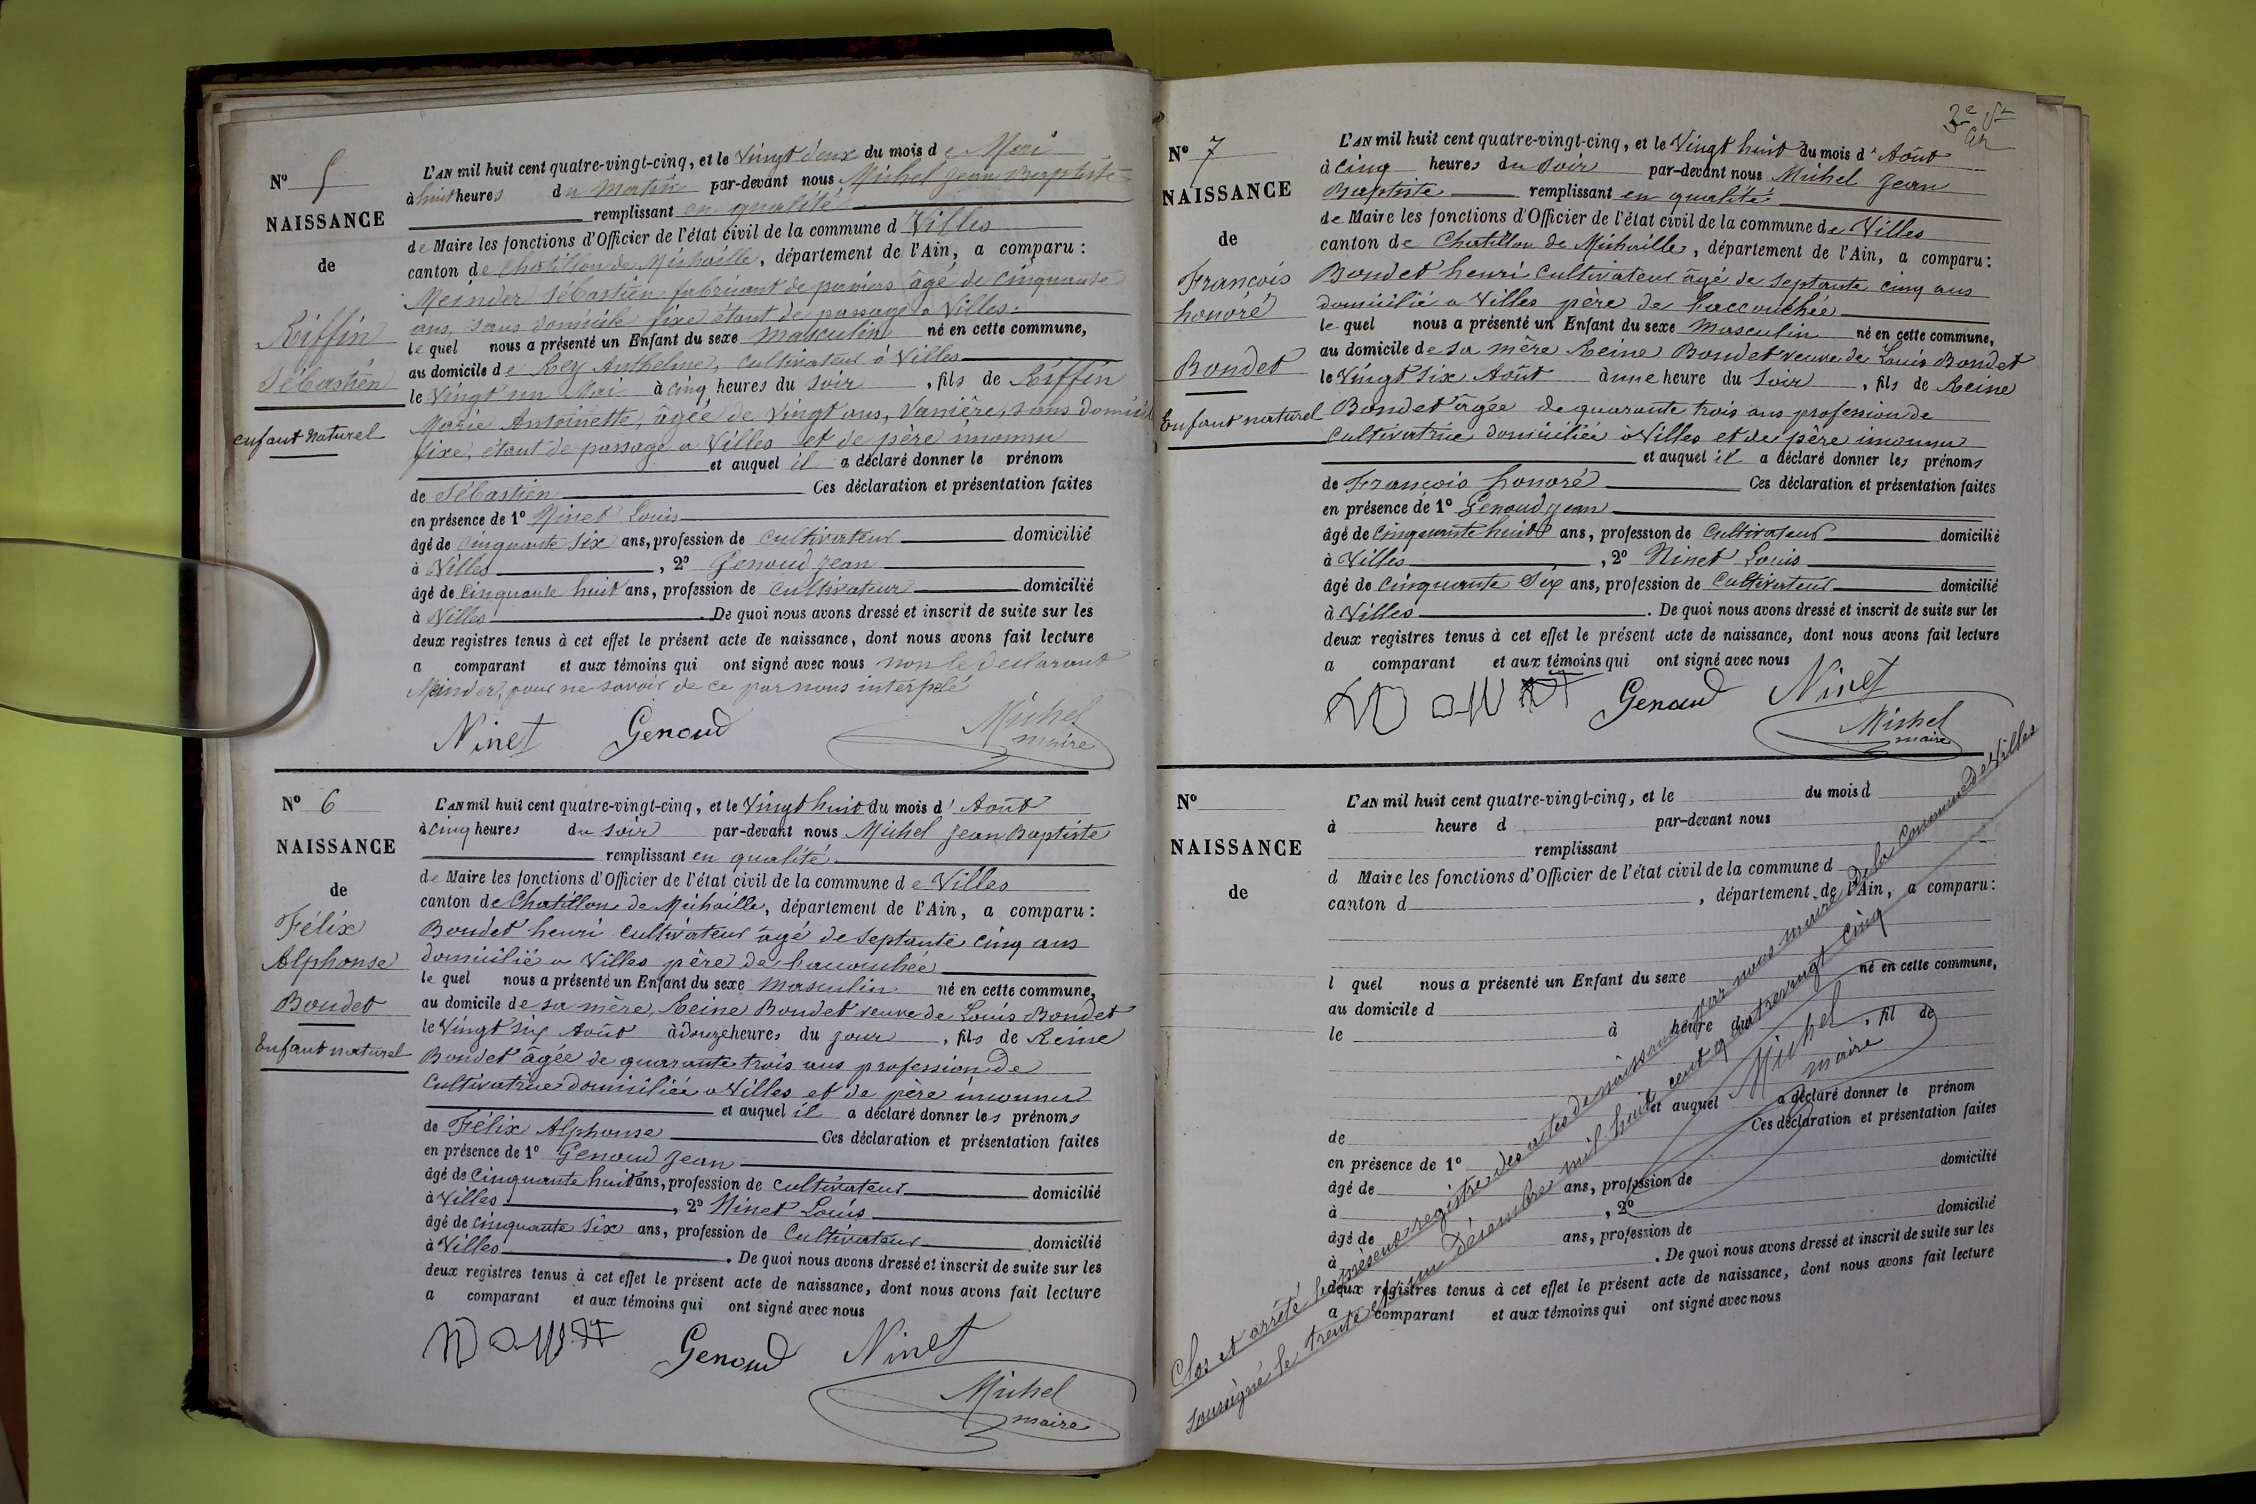 Nº 5
NAISSANCE
de
Riffin
Sébastien
enfant naturel
L'AN mil huit cent quatre-vingt-cinq, et le Vingt deux du mois de Mai
à huit heures du matin par-devant nous Michel Jean Baptiste
remplissant en qualité
de Maire les fonctions d'Officier de l'état civil de la commune d Villes
canton de Chatillon de Michaille, département de l'Ain, a comparu :
Meinder Sébastien fabricant de paniers âgé de cinquante
ans, sans domicile fixe étant de passage a Villes
le quel nous a présenté un Enfant du sexe masculin né en cette commune,
au domicile de Rey Anthelme, cultivateur à Villes
le Vingt un Mai à cinq heures du soir, fils de Riffin
Marie Antoinette, âgée de vingt ans, Vanière, sans domicile
fixe, étant de passage a Villes et de père inconnu
et auquel il a déclaré donner le prénom
de Sébastien Ces déclaration et présentation faites
en présence de 1º Ninet Louis
âgé de cinquante six ans, profession de cultivateur domicilié
à Villes, 2º Genoud Jean
âgé de cinquante huit ans, profession de cultivateur domicilié
à Villes. De quoi nous avons dressé et inscrit de suite sur les
deux registres tenus à cet effet le présent acte de naissance, dont nous avons fait lecture
a comparant et aux témoins qui ont signé avec nous non le déclarant
Meinder, pour ne savoir de ce par nous interpelé
Ninet Genoud Michel
maire
Nº 6
NAISSANCE
de
Félix
Alphonse
Bondet
Enfant naturel
L'AN mil huit cent quatre-vingt-cinq, et le Vingt huit du mois d' Août
à cinq heures du soir par-devant nous Michel Jean Baptiste
remplissant en qualité
de Maire les fonctions d'Officier de l'état civil de la commune de Villes
canton de Chatillon de Michaille, département de l'Ain, a comparu :
Bondet henri cultivateur âgé de septante cinq ans
domicilié a Villes père de l'accouchée
le quel nous a présenté un Enfant du sexe masculin né en cette commune,
au domicile de sa mère, Reine Bondet veuve de Louis Bondet
le Vingt six Août à douze heures du jour, fils de Reine
Bondet âgée de quarante trois ans profession de
cultivatrice domiciliée a Villes et de père inconnu
et auquel il a déclaré donner les prénoms
de Félix Alphonse Ces déclaration et présentation faites
en présence de 1º Genoud Jean
âgé de cinquante huit ans, profession de cultivateur domicilié
à Villes, 2º Ninet Louis
âgé de cinquante six ans, profession de cultivateur domicilié
à Villes. De quoi nous avons dressé et inscrit de suite sur les
deux registres tenus à cet effet le présent acte de naissance, dont nous avons fait lecture
a comparant et aux témoins qui ont signé avec nous
Genoud Ninet
Michel
maire
Nº 7
NAISSANCE
de
François
honoré
Bondet
Enfant naturel
L'AN mil huit cent quatre-vingt-cinq, et le Vingt huit du mois d' Août
à cinq heures du soir par-devant nous Michel Jean
Baptiste remplissant en qualité
de Maire les fonctions d'Officier de l'état civil de la commune de Villes
canton de Chatillon de Michaille, département de l'Ain, a comparu :
Bondet henri cultivateur âgé de septante cinq ans
domicilié a Villes père de l'accouchée
le quel nous a présenté un Enfant du sexe masculin né en cette commune,
au domicile de sa mère Reine Bondet veuve de Louis Bondet
le Vingt six Août à une heure du soir, fils de Reine
Bondet âgée de quarante trois ans profession de
cultivatrice domiciliée à Villes et de père inconnu
et auquel il a déclaré donner les prénoms
de François honoré Ces déclaration et présentation faites
en présence de 1º Genoud Jean
âgé de cinquante huit ans, profession de cultivateur domicilié
à Villes, 2º Ninet Louis
âgé de cinquante six ans, profession de cultivateur domicilié
à Villes. De quoi nous avons dressé et inscrit de suite sur les
deux registres tenus à cet effet le présent acte de naissance, dont nous avons fait lecture
a comparant et aux témoins qui ont signé avec nous
Genoud Ninet
Michel
maire
Nº
NAISSANCE
de
L'AN mil huit cent quatre-vingt-cinq, et le du mois d
à heure d par-devant nous
remplissant
d Maire les fonctions d'Officier de l'état civil de la commune d
canton d, département de l'Ain, a comparu :
l quel nous a présenté un Enfant du sexe né en cette commune,
au domicile d
le à heure du, fil de
et auquel a déclaré donner le prénom
de Ces déclaration et présentation faites
en présence de 1º
âgé de ans, profession de domicilié
à, 2º
âgé de ans, profession de domicilié
à. De quoi nous avons dressé et inscrit de suite sur les
deux registres tenus à cet effet le présent acte de naissance, dont nous avons fait lecture
a comparant et aux témoins qui ont signé avec nous
Clos et arrêté le présent registre des actes de naissance par nous maire de la commune de Villes
soussigné le trente et un Décembre mil huit cent quatre vingt cinq
Michel
maire